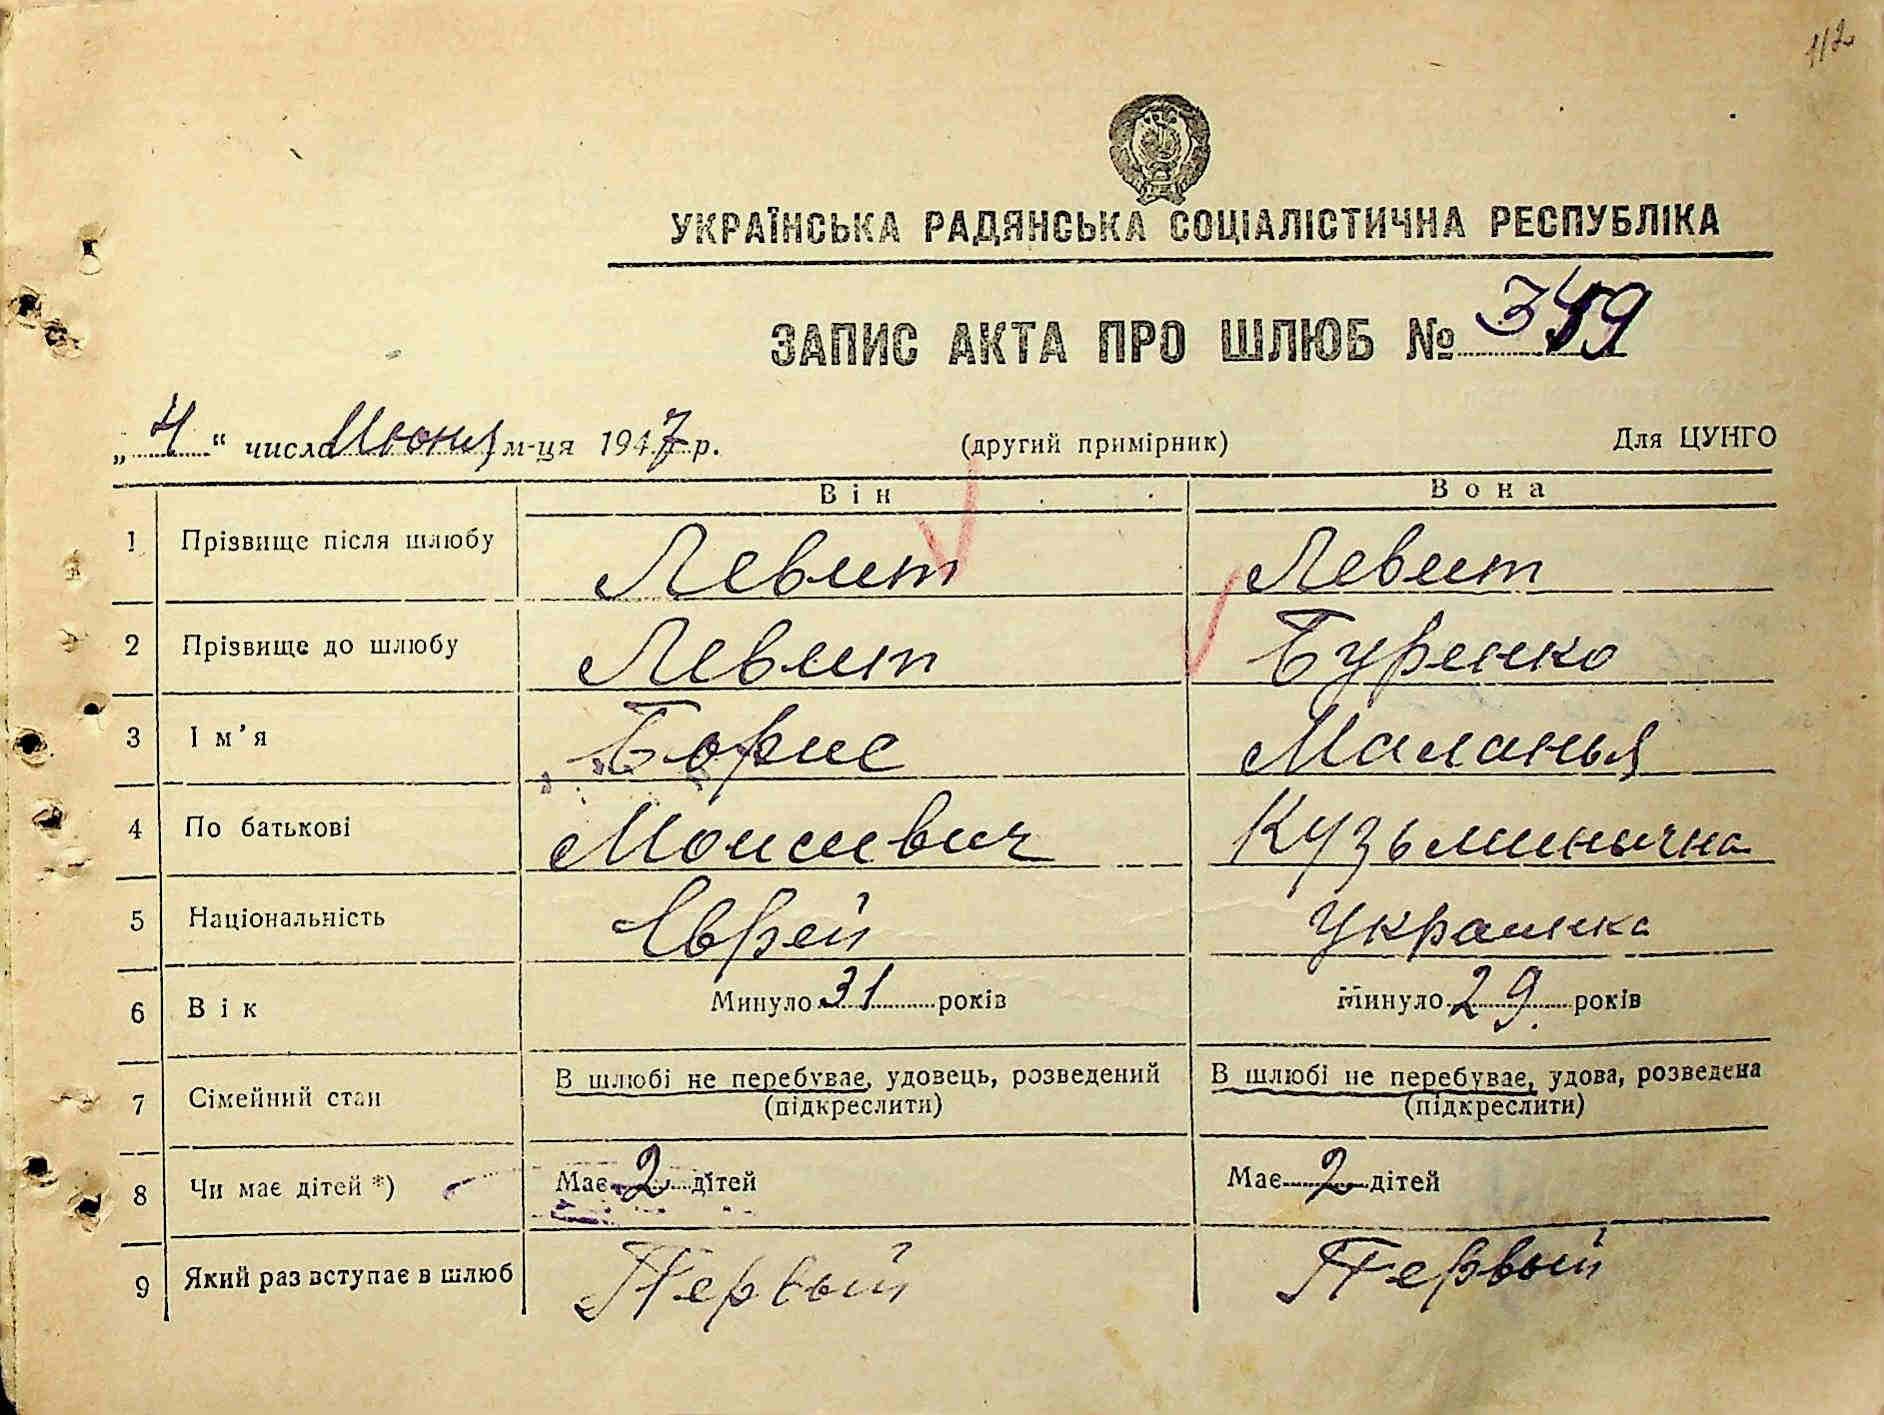 УКРАЇНСЬКА РАДЯНСЬКА СОЦІАЛІСТИЧНА РЕСПУБЛІКА
ЗАПИС АКТА ПРО ШЛЮБ №
„ 4 “ числа Июня м-ця 1947 р. (другий примірник) Для ЦУНГО
Він Вона
1 Прізвище після шлюбу Левит Левит
2 Прізвище до шлюбу Левит Буренко
3 Ім’я Борис Маланья
4 По батькові Моисеевич Кузьминична
5 Національність Еврей Украинка
6 Вік Минуло 31 років Минуло 29 років
7 Сімейний стан В шлюбі не перебуває, удовець, розведений (підкреслити) В шлюбі не перебуває, удова, розведена (підкреслити)
8 Чи має дітей *) Має 2 дітей Має 2 дітей
9 Який раз вступає в шлюб Первый Первый